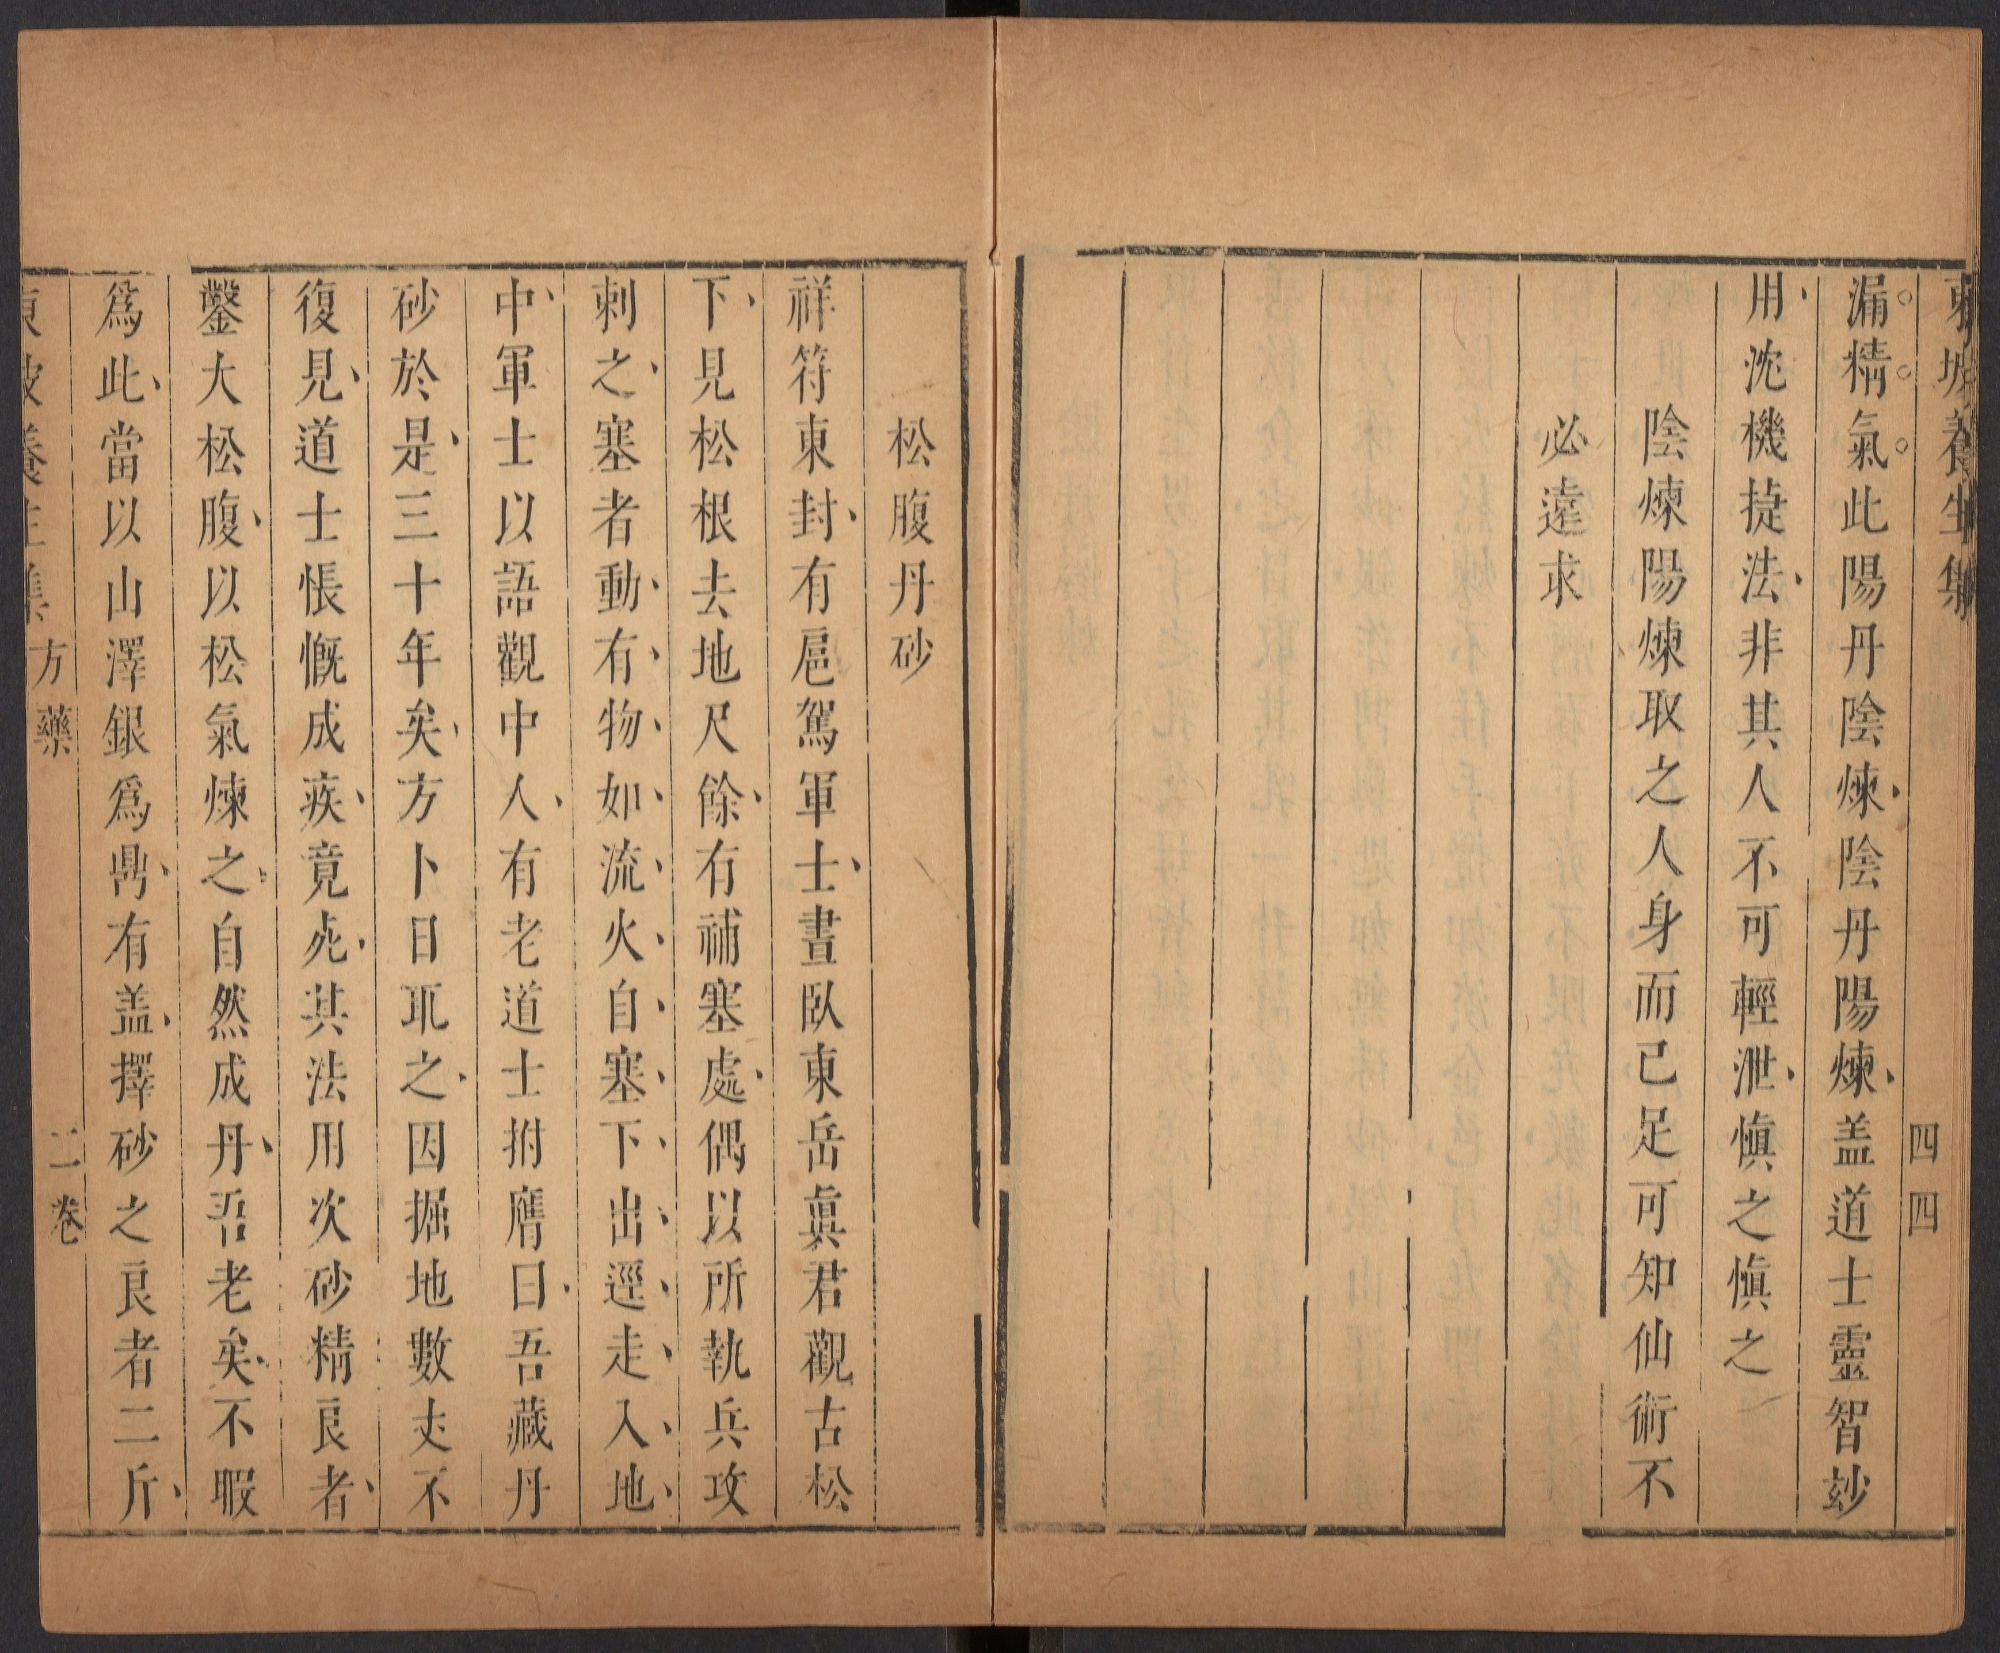 東坡養生集
四四
漏精氣此陽丹陰煉陰丹陽煉盖道士靈智玅
用沈機捷法非其人不可輕泄慎之慎之
陰煉陽煉取之人身而已足可知仙術不
必遠求
松腹丹砂
祥符東封有扈駕軍士晝臥東岳眞君觀古松
下見松根去地尺餘有補塞處偶以所執兵攻
刺之塞者動有物如流火自塞下出逕走入地
中軍士以語觀中人有老道士拊膺曰吾藏丹
砂於是三十年矣方卜日取之因掘地數丈不
復見道士悵慨成疾竟死其法用次砂精良者
鑿大松腹以松氣煉之自然成丹吾老矣不暇
爲此當以山澤銀爲鼎有盖擇砂之良者二斤
東坡養生集
方藥
二卷